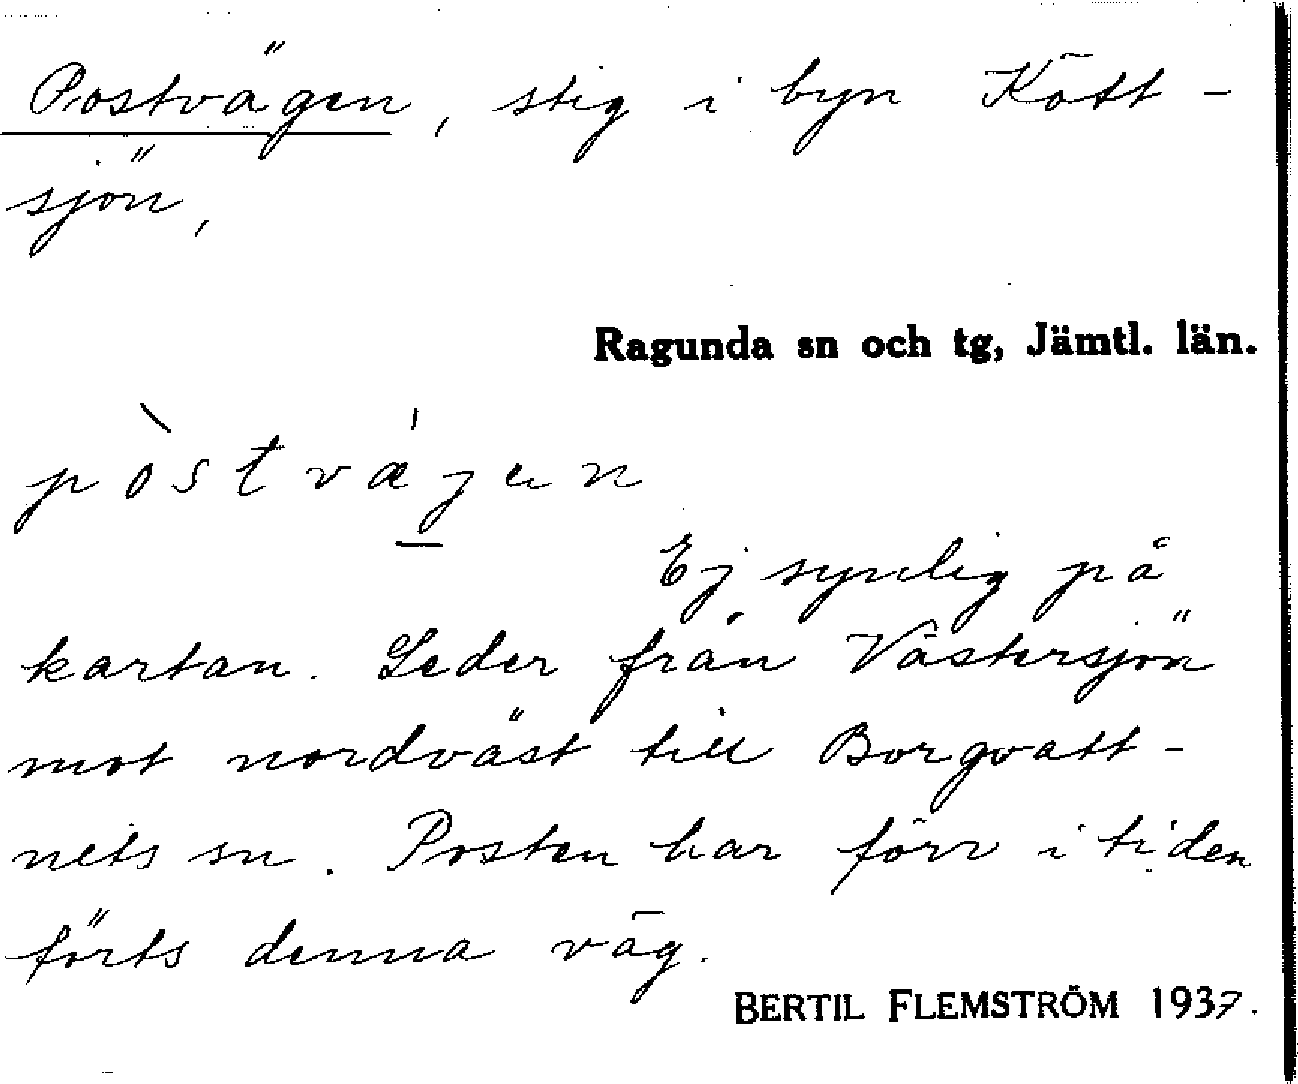 Postvägen, stig i byn Kött-
sjön,
Ragunda sn och tg, Jämtl. län.
pòstvǽgen
Ej synlig på
kartan. Leder från Västersjön
mot nordväst till Borgvatt-
nets sn. Posten har förr i tiden
förts denna väg.
BERTIL FLEMSTRÖM 1937.